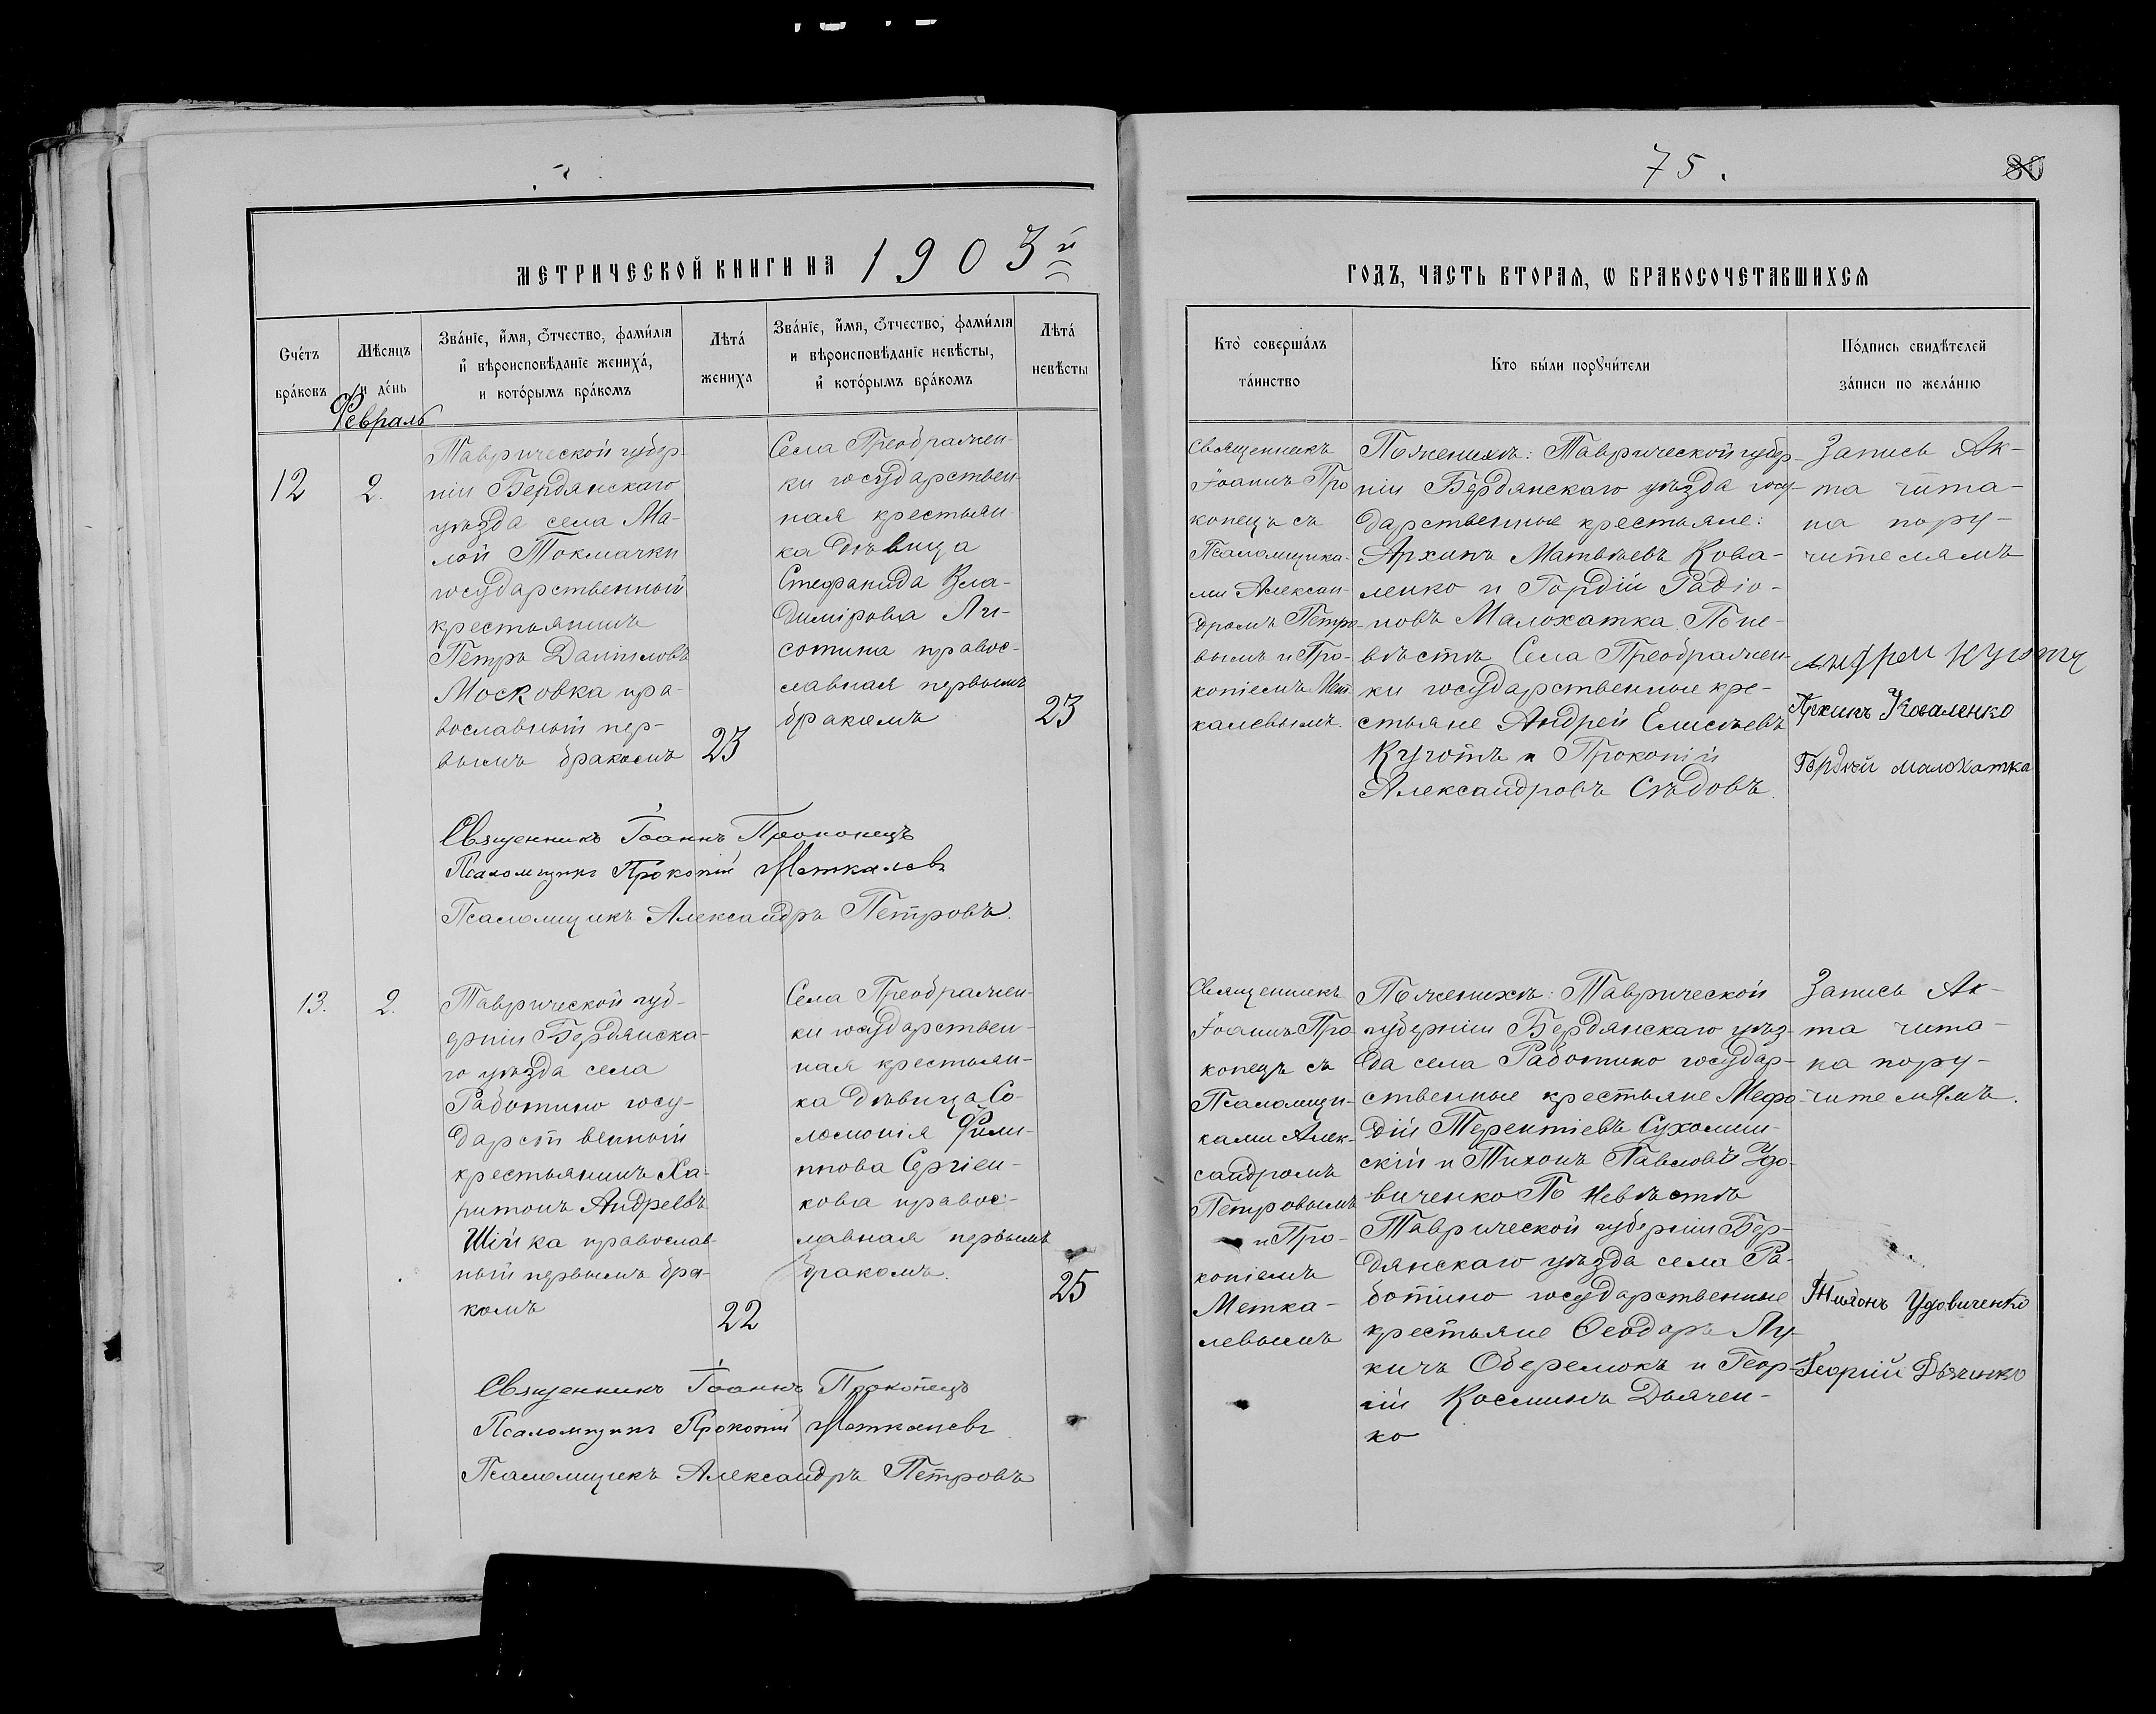 75.
80
МЕТРИЧЕСКОЙ КНИГИ НА 1903й
ГОДЪ, ЧАСТЬ ВТОРАЯ, Ѡ БРАКОСОЧЕТАВШИХСЯ
Счетъ
браковъ
Мѣсяцъ
и день
Званіе, имя, ѿчество, фамилія
и вѣроисповѣданіе жениха,
и которымъ бракомъ
Лѣта
жениха
Званіе, имя, ѿчество, фамилія
и вѣроисповѣданіе невѣсты,
и которымъ бракомъ
Лѣта
невѣсты
Кто совершалъ
таинство
Кто были порꙋчители
Подпись свидѣтелей
записи по желанію
Февраль
12
2.
Таврической губер-
ніи Бердянскаго
уѣзда села Ма-
лой Токмачки
государственный
крестьянинъ
Петръ Даниловъ
Московка пра-
вославный пер-
вымъ бракомъ
23
Села Преображен-
ки государствен-
ная крестьян-
ка дѣвица
Стефанида Вла-
димірова Ли-
сотина правос-
славная первымъ
бракомъ
23
Священникъ
Іоаннъ Про
копецъ съ
Псаломщика-
ми Алексан-
дромъ Петро-
вымъ и Про-
копіемъ Мет-
калевымъ.
По женихѣ: Таврической губер-
ніи Бердянскаго уѣзда госу-
дарственные крестьяне:
Архипъ Матвѣевъ Кова-
ленко и Гордій Радіо-
новъ Малохатка. По не-
вѣстѣ Села Преображен-
ки государственные кре-
стьяне Андрей Елисѣевъ
Куготъ и Прокопій
Александровъ Сѣдовъ.
Запись Ак-
та чита-
на пору-
чителямъ
Архипъ Коваленко
Гордий малохатка
Священникъ Іоаннъ Прокопецъ
Псаломщикъ Прокопій Меткалевъ
Псаломщикъ Александръ Петровъ.
13.
2.
Таврической губ-
ерніи Бердянска-
го уѣзда села
Работино госу-
дарственный
крестьянинъ Ха-
ритонъ Андреевъ
Шійка православ-
ный первымъ бра-
комъ
22
Села Преображен-
ки государствен-
ная крестьян-
ка дѣвица Со-
ломонія Фили-
ппова Сергіен-
кова правос-
лавная первымъ
бракомъ.
25
Священникъ
Іоаннъ Про-
копецъ съ
Псаломщи-
ками Алек-
сандромъ
Петровымъ
и Про-
копіемъ
Метка-
левымъ
По женихѣ: Таврической
губерніи Бердянскаго уѣз-
да села Работино государ-
ственные крестьяне Мефо-
дій Терентіевъ Сухомлин-
скій и Тихонъ Павловъ Удо-
виченко По невѣстѣ
Таврической губерніи Бер-
дянскаго уѣзда села Ра-
ботино государственные
крестьяне Ѳеодоръ Лу-
кичъ Оберемокъ и Геор-
гій Косминъ Дьячен-
ко
Запись Ак-
та чита-
на пору-
чителямъ.
Тихонъ Удовиченко
Георгій Дьяченко
Священникъ Іоаннъ Прокопецъ
Псаломщикъ Прокопій Меткалевъ
Псаломщикъ Александръ Петровъ